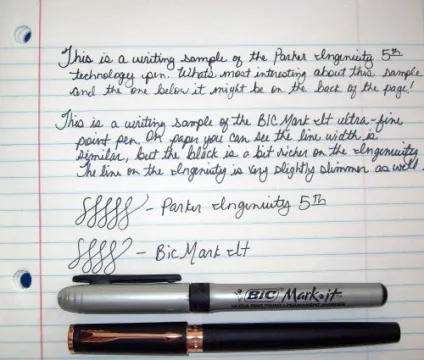 This is a writing sample of the Parker Ingenuity 5th
technology pen. What's most interesting about this sample
and the one below it might be on the back of the page!
This is a writing sample of the BIC Mark It ultra-fine
point pen. On paper you can see the line width is
similar, but the black is a bit richer on the Ingenuity.
The line on the Ingenuity is very slightly slimmer as well.
- Parker Ingenuity 5th
- Bic Mark It
BIC Mark-it
ULTRA FINE POINT PERMANENT MARKER